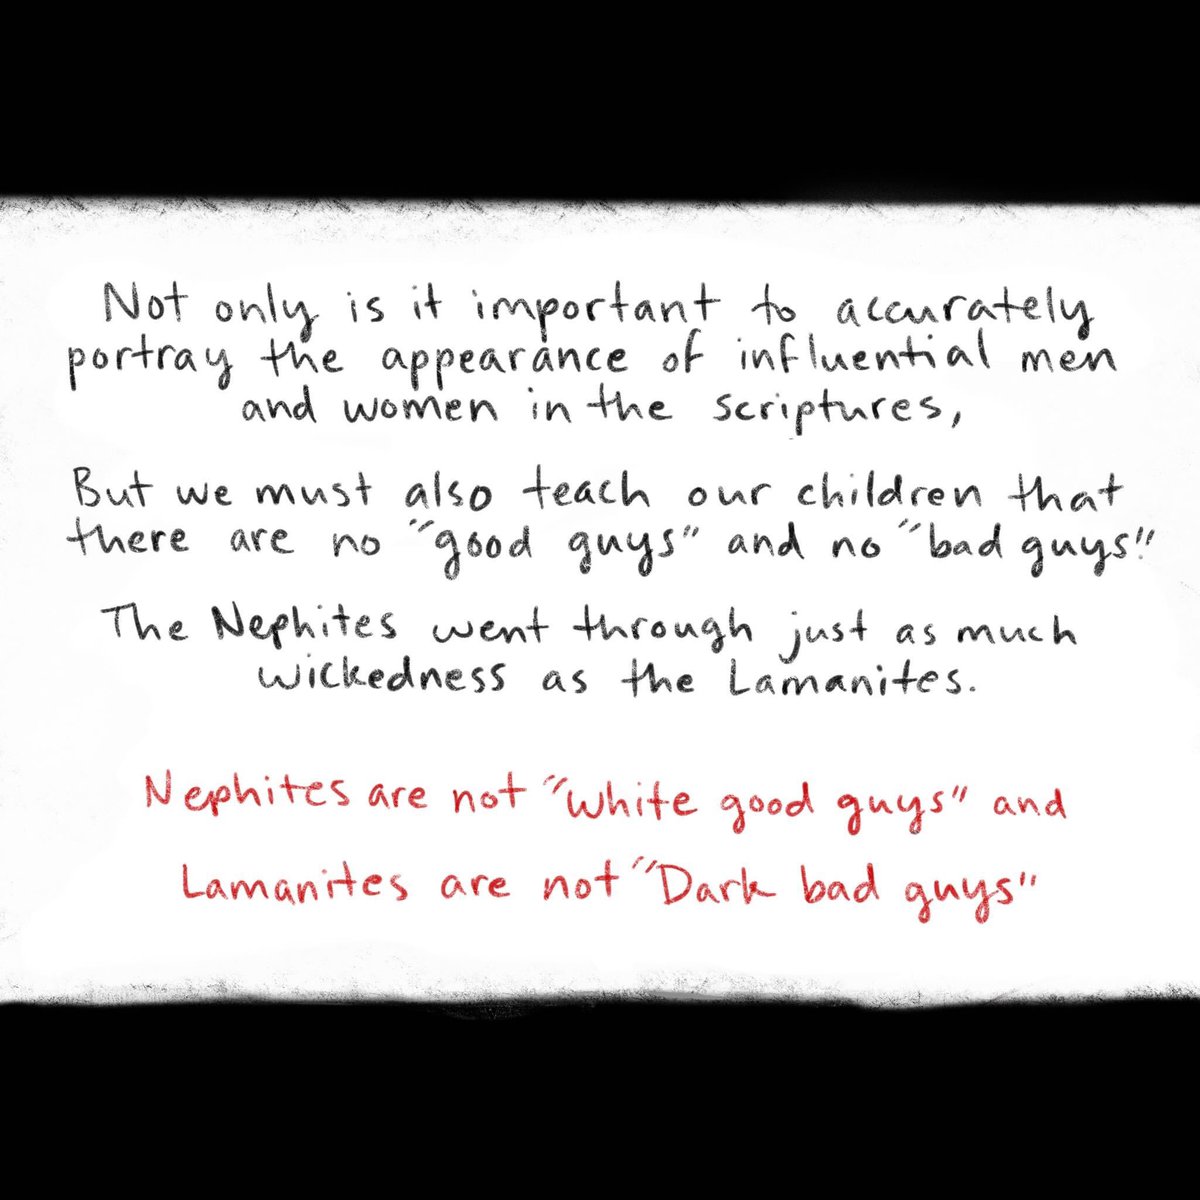 Not only is it important to accurately
portray the appearance of influential men
and women in the scriptures,
But we must also teach our children that
there are no "good guys" and no "bad guys".
The Nephites went through just as much
wickedness as the Lamanites.
Nephites are not "White good guys" and
Lamanites are not "Dark bad guys"